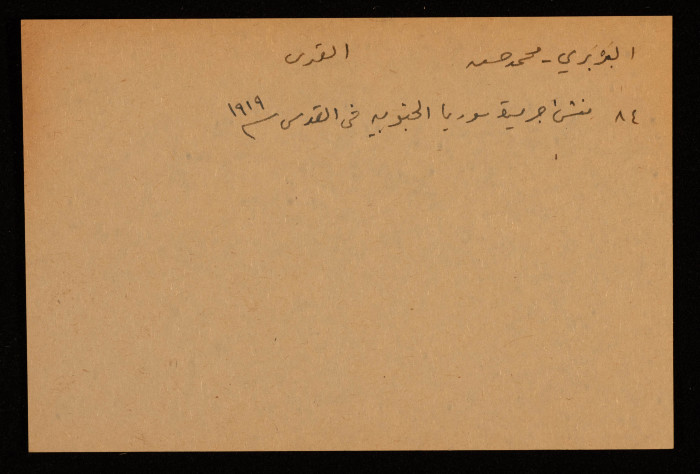 البديري - محمد حسن القدس
٨٤ منشئ جريدة سوريا الجنوبيه في القدس سنة ١٩١٩